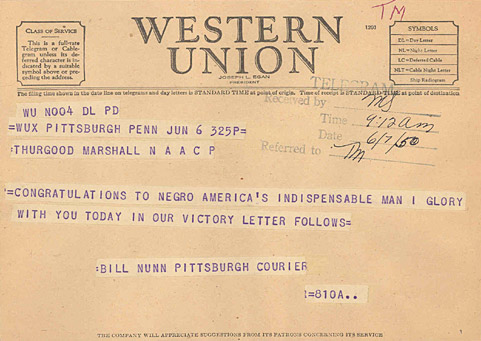 TM
CLASS OF SERVICE
This is a full-rate
Telegram or Cable-
gram unless its de-
ferred character is in-
dicated by a suitable
symbol above or pre-
ceding the address.
WESTERN
UNION
JOSEPH L. EGAN
PRESIDENT
1201
SYMBOLS
DL=Day Letter
NL=Night Letter
LC=Deferred Cable
NLT=Cable Night Letter
Ship Radiogram
The filing time shown in the date line on telegrams and day letters is STANDARD TIME at point of origin. Time of receipt is STANDARD TIME at point of destination
TELEGRAM
Received by MS
Time 9:12 am
Date 6/7/50
Referred to TM
WU N004 DL PD
=WUX PITTSBURGH PENN JUN 6 325P=
THURGOOD MARSHALL N A A C P
=CONGRATULATIONS TO NEGRO AMERICA'S INDISPENSABLE MAN I GLORY
WITH YOU TODAY IN OUR VICTORY LETTER FOLLOWS=
:BILL NUNN PITTSBURGH COURIER
=810A..
THE COMPANY WILL APPRECIATE SUGGESTIONS FROM ITS PATRONS CONCERNING ITS SERVICE